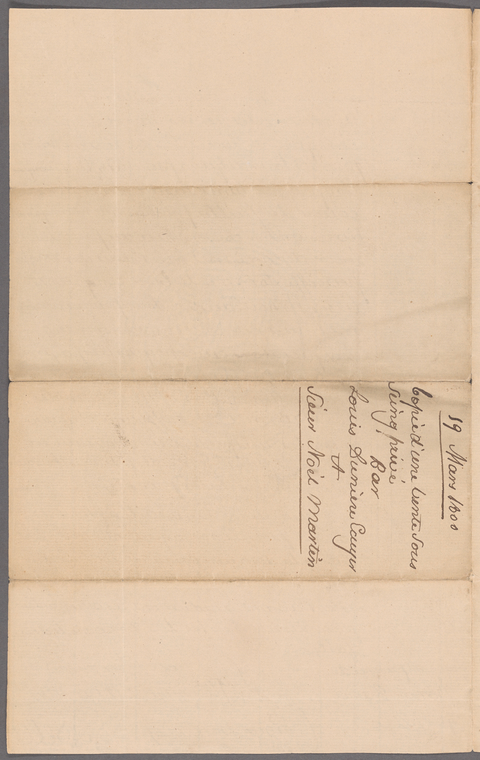 19 Mars 1800
Copie d'une Vente Sous
Seing privé
Par
Louis Dunière Ecuyer
A
Sieur Noël Martin